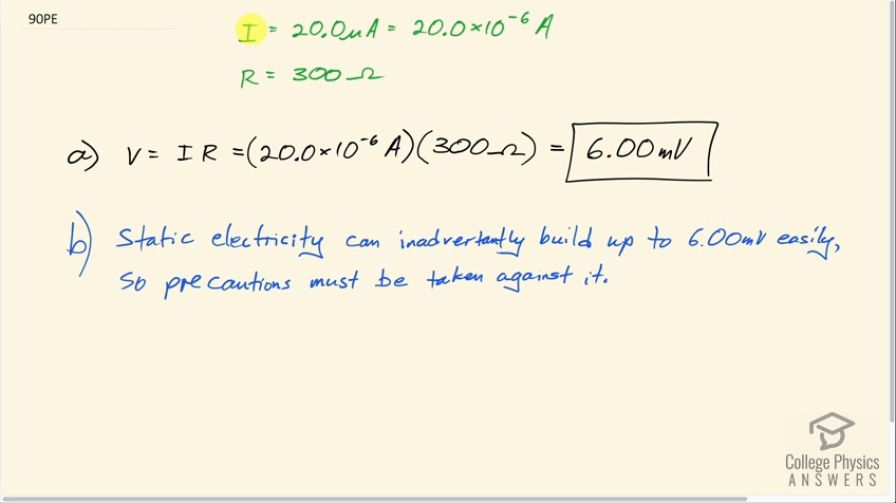 90PE
I = 20.0μA = 20.0×10⁻⁶ A
R = 300 Ω
a) V = I R = (20.0×10⁻⁶ A)(300Ω) = 6.00mV
b) Static electricity can inadvertantly build up to 6.00mV easily,
So precautions must be taken against it.
College Physics
ANSWERS